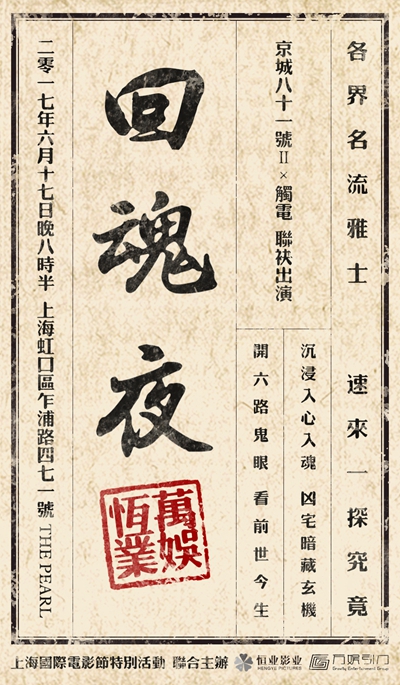 各界名流雅士 速來一探究竟
京城八十一號II×觸電 聯袂出演
沉浸入心入魂 凶宅暗藏玄機
開六路鬼眼 看前世今生
回魂夜
萬娛
恆業
二零一七年六月十七日晚八時半 上海虹口區乍浦路四七一號 THE PEARL
上海國際電影節特別活動 聯合主辦 恒业影业 HENGYE PICTURES 万娱引力 Gravity Entertainment Group